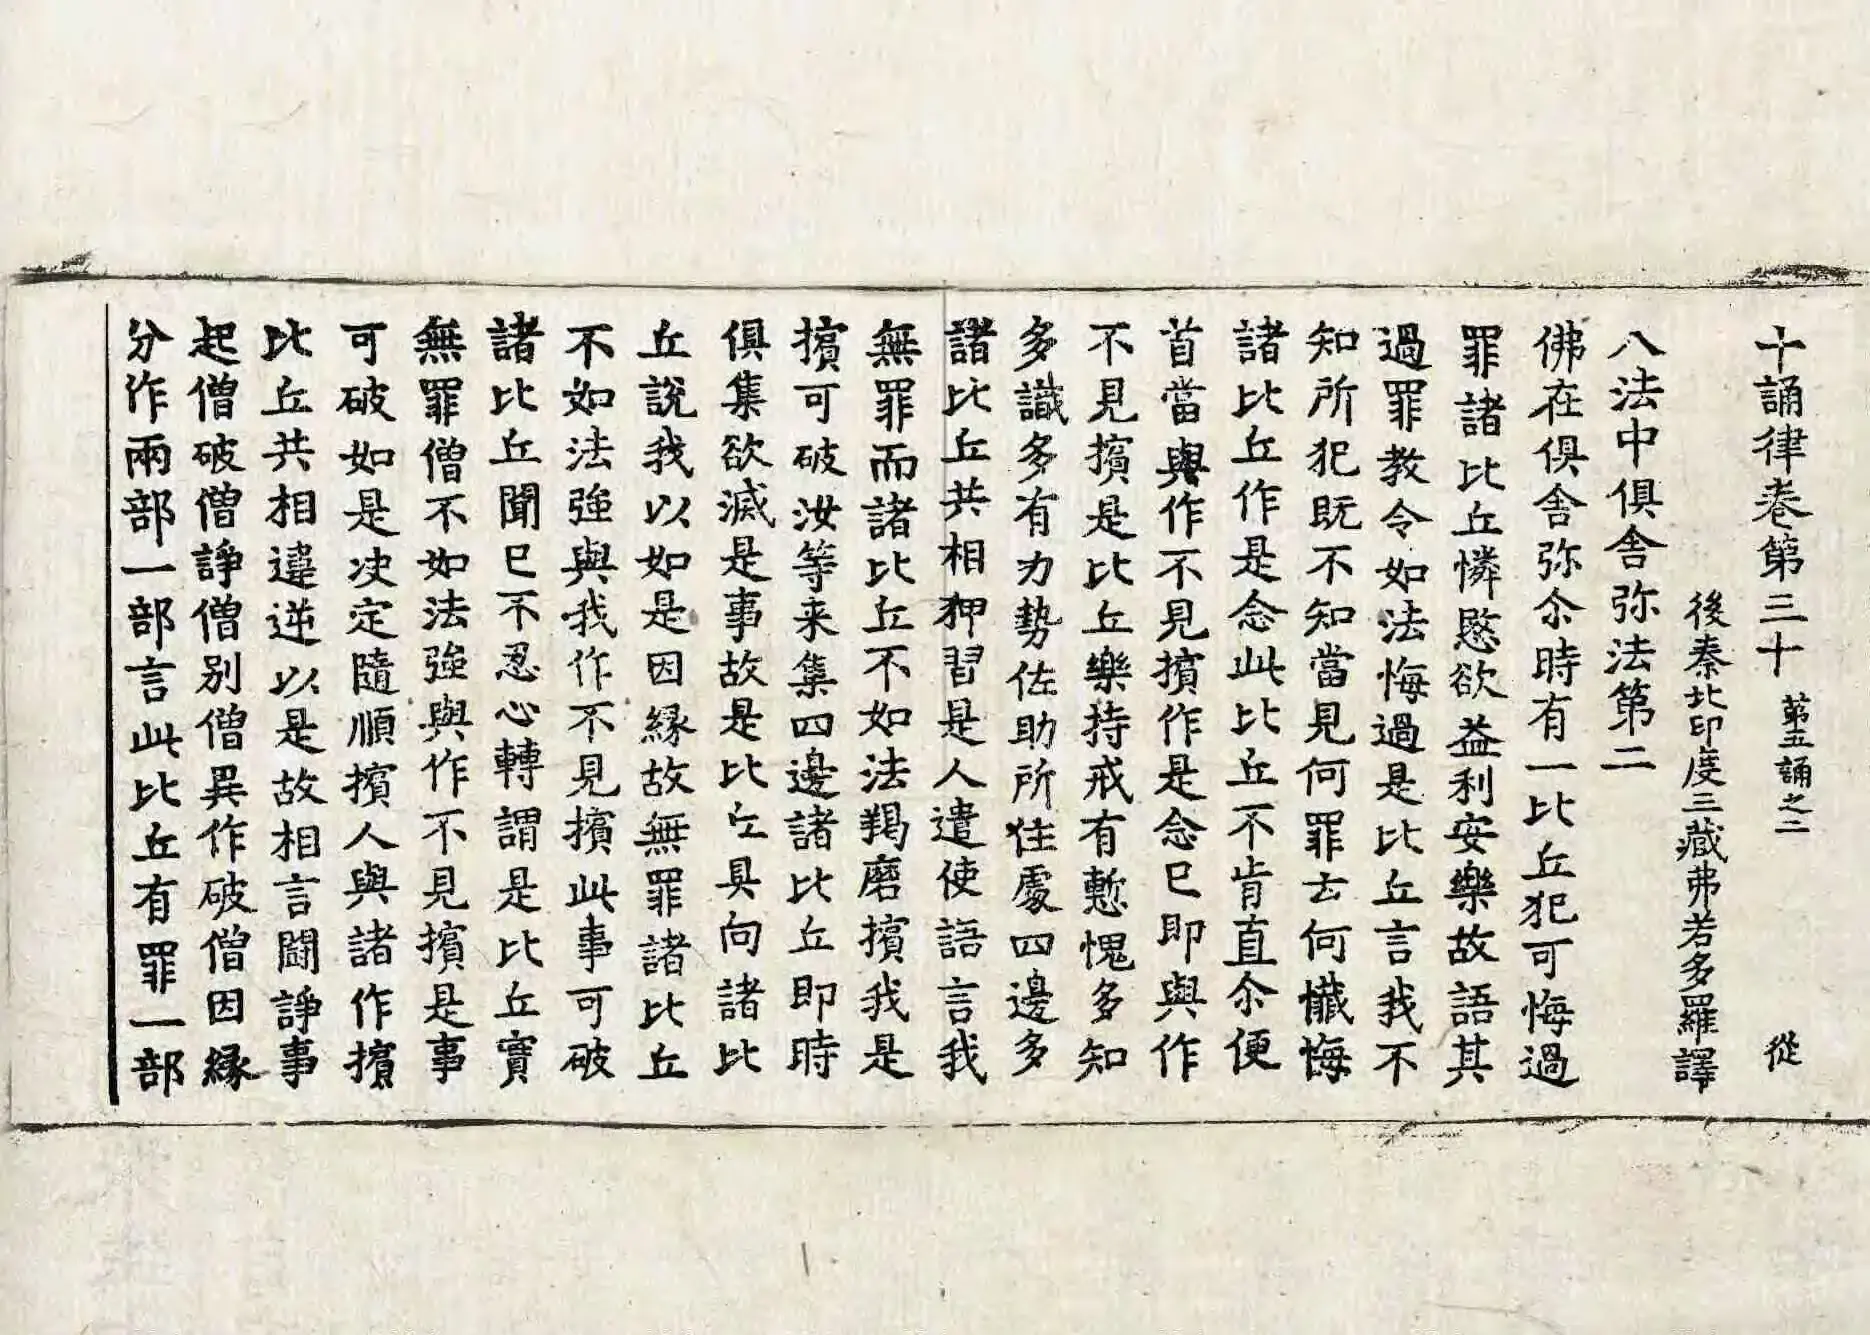 十誦律卷第三十 第五誦之二 從
後秦北印度三藏弗若多羅譯
八法中俱舍弥法第二
佛在俱舍弥尒時有一比丘犯可悔過
罪諸比丘憐愍欲益利安樂故語其
過罪教令如法悔過是比丘言我不
知所犯既不知當見何罪云何懺悔
諸比丘作是念此比丘不肯直尒便
首當與作不見擯作是念已即與作
不見擯是比丘樂持戒有慙愧多知
多識多有力勢佐助所住處四邊多
諸比丘共相狎習是人遣使語言我
無罪而諸比丘不如法羯磨擯我是
擯可破汝等来集四邊諸比丘即時
俱集欲滅是事故是比丘具向諸比
丘說我以如是因緣故無罪諸比丘
不如法強與我作不見擯此事可破
諸比丘聞已不忍心轉謂是比丘實
無罪僧不如法強與作不見擯是事
可破如是决定隨順擯人與諸作擯
比丘共相違逆以是故相言鬪諍事
起僧破僧諍僧别僧異作破僧因緣
分作兩部一部言此比丘有罪一部